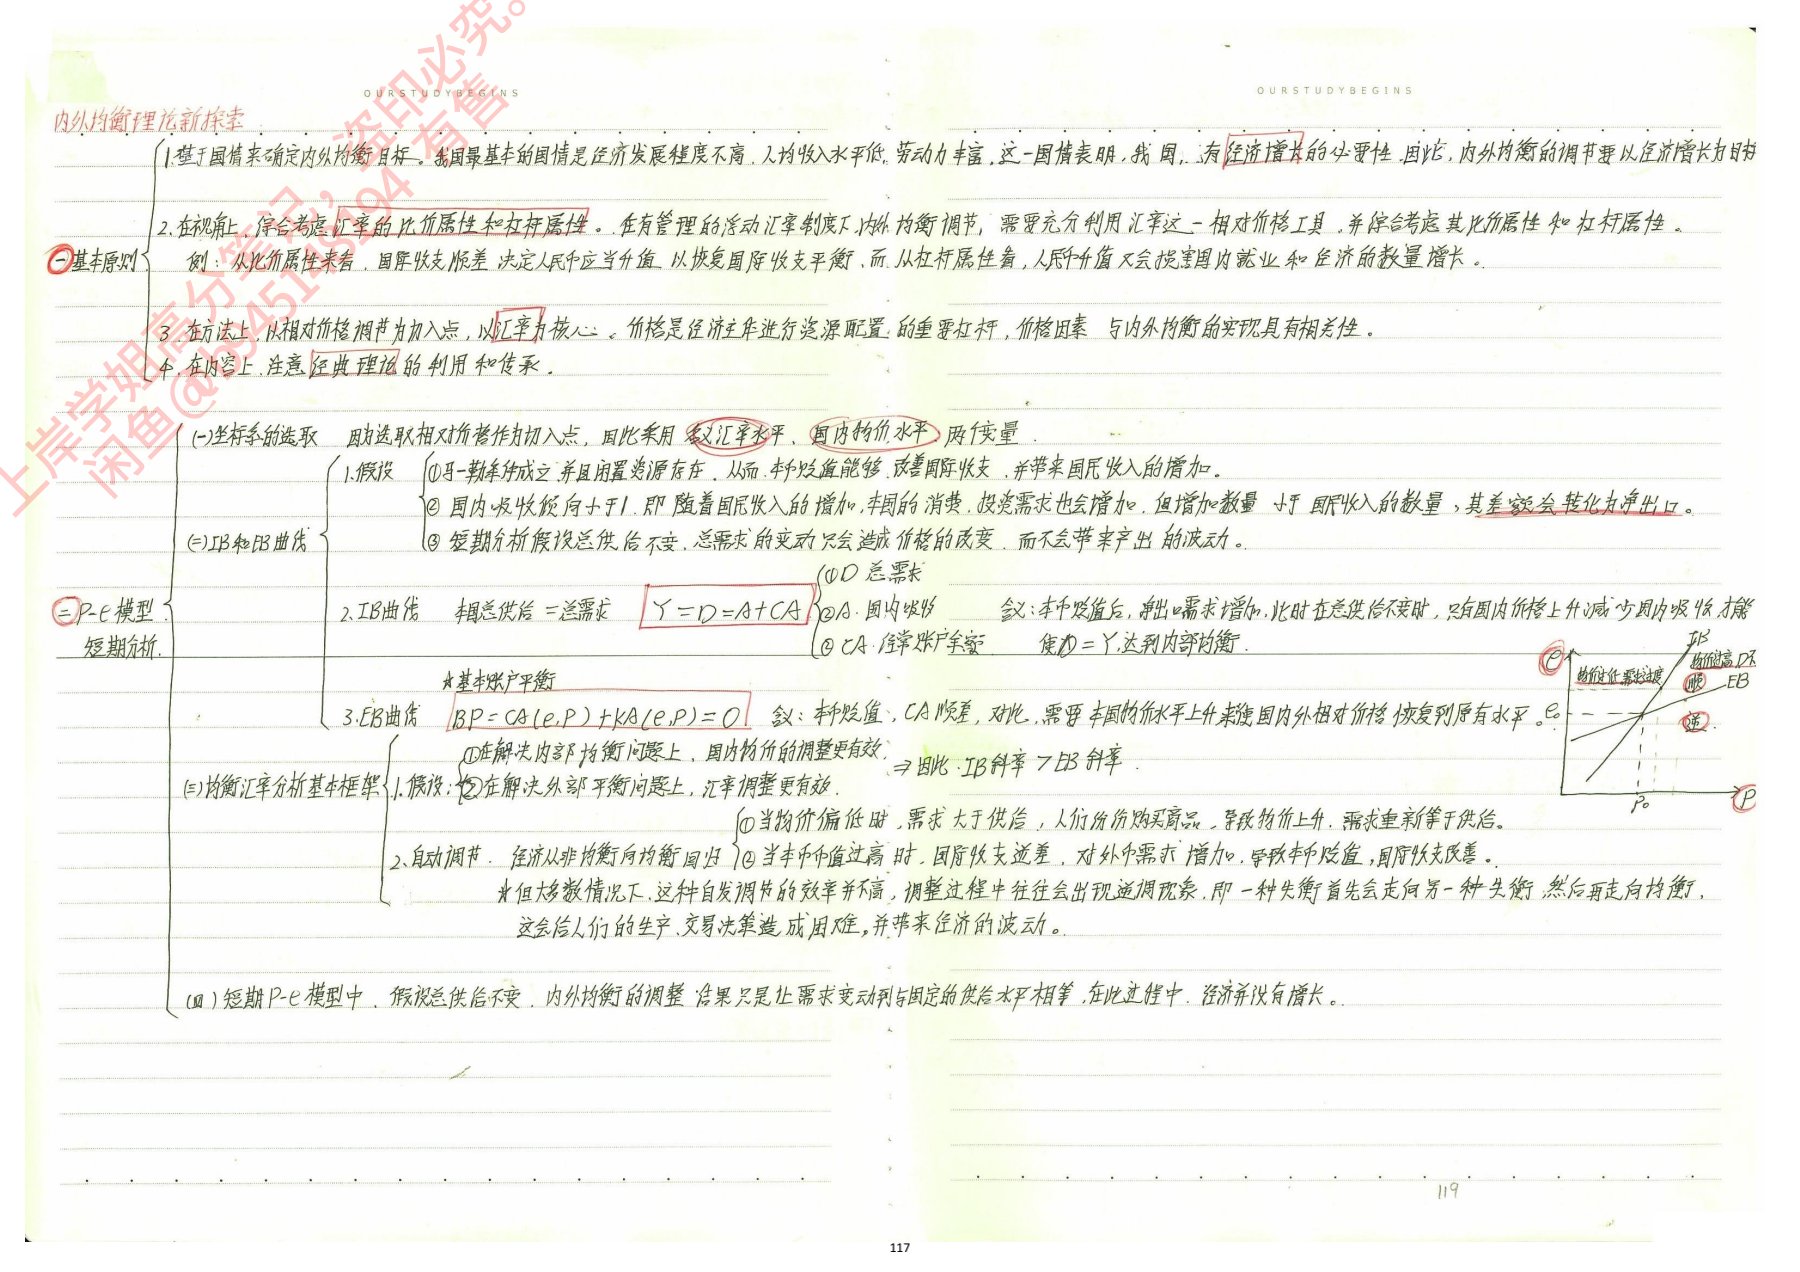 OURSTUDYBEGINS
OURSTUDYBEGINS
内外均衡理论新探索
一 基本原则
1.基于国情来确定内外均衡目标。我国最基本的国情是经济发展程度不高,人均收入水平低,劳动力丰富,这一国情表明,我国,有经济增长的必要性,因此,内外均衡的调节要以经济增长为目标
2.在视角上,综合考虑汇率的比价属性和杠杆属性。在有管理的浮动汇率制度下,内外均衡调节,需要充分利用汇率这一相对价格工具,并综合考虑其比价属性和杠杆属性。
例:从比价属性来看,国际收支顺差决定人民币应当升值以恢复国际收支平衡,而从杠杆属性看,人民币升值又会损害国内就业和经济的数量增长。
3.在方法上,以相对价格调节为切入点,以汇率为核心。价格是经济主体进行资源配置的重要杠杆,价格因素与内外均衡的实现具有相关性。
4.在内容上,注意经典理论的利用和传承。
二 P-e模型
短期分析.
(一)坐标系的选取 因为选取相对价格作为切入点,因此采用名义汇率水平、国内物价水平两个变量.
(二)IB和EB曲线
1.假设
①马—勒条件成立并且闲置资源存在,从而本币贬值能够改善国际收支,并带来国民收入的增加。
②国内吸收倾向小于1,即随着国民收入的增加,本国的消费,投资需求也会增加,但增加数量小于国民收入的数量,其差额会转化为净出口。
③短期分析假设总供给不变,总需求的变动只会造成价格的改变,而不会带来产出的波动。
2.IB曲线 本国总供给=总需求 Y=D=A+CA
①D 总需求
②A.国内吸收
③CA.经常账户余额
含义:本币贬值后,净出口需求增加,此时在总供给不变时,只有国内价格上升减少国内吸收,才能
使D=Y,达到内部均衡.
☆基本账户平衡
3.EB曲线 BP=CA(e,P)+KA(e,P)=0 含义:本币贬值,CA顺差,对此,需要本国物价水平上升来使国内外相对价格恢复到原有水平。
e
IB
物价过低需求过度
物价过高D不
顺
EB
e₀
逆
P₀
P
(三)均衡汇率分析基本框架
1.假设:
①在解决内部均衡问题上,国内物价的调整更有效,
②在解决外部平衡问题上,汇率调整更有效.
⇒因此.IB斜率>EB斜率.
2.自动调节. 经济从非均衡向均衡回归
①当物价偏低时,需求大于供给,人们纷纷购买商品,导致物价上升,需求重新等于供给。
②当本币币值过高时,国际收支逆差,对外币需求增加,导致本币贬值,国际收支改善。
☆但大多数情况下,这种自发调节的效率并不高,调整过程中往往会出现逆调现象,即一种失衡首先会走向另一种失衡,然后再走向均衡,
这会给人们的生产、交易决策造成困难,并带来经济的波动。
(四)短期P-e模型中,假设总供给不变,内外均衡的调整结果只是让需求变动到与固定的供给水平相等,在此过程中,经济并没有增长。
119
117
上岸学姐高分笔记,盗印必究。
闲鱼@b945145194有售